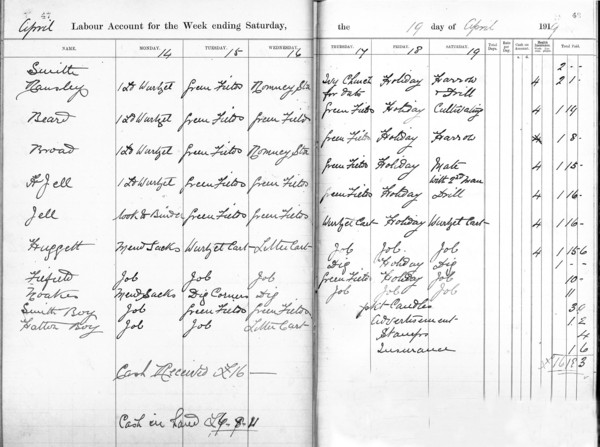 47
April Labour Account for the Week ending Saturday, the 19 day of April 1919
NAME. MONDAY. 14 TUESDAY. 15 WEDNESDAY. 16 THURSDAY. 17 FRIDAY. 18 SATURDAY. 19 Total Days. Rate per Day. Cash on Account. Total Paid.
Smith 2 - -
Ransley 1 Ld Wurtzel Green Fields Romney Stn Ivy Church for Oats Holiday Harrow & Drill 4 2 1 -
Beard 1 Ld Wurtzel Green Fields Green Fields Green Fields Holiday Cultivating 4 1 19
Broad 1 Ld Wurtzel Green Fields Romney Stn Green Fields Holiday Harrow 1 8 -
H Jell 1 Ld Wurtzel Green Fields Green Fields Green Fields Holiday Mate with 2nd Man 4 1 15 -
Jell Cook & Binder Green Fields Green Fields Green Fields Holiday Drill 4 1 16 -
Huggett Mend Sacks Wurtzel Cart Litter Cart Wurtzel Cart Holiday Wurtzel Cart 4 1 16 -
Fifield Job Job Job Job Job Job 4 1 15 6
Noakes Mend Sacks Dig Corners Dig Dig Holiday Dig 1 - -
Smith Boy Job Green Fields Green Fields Green Fields Holiday Job 10 -
Hatton Boy Job Job Litter Cart Job Job Job 11
pkt Candles 3.0
Advertisement 1 2
Stamps 4
Insurance 1 6
£ 16 18 3
Cash Received £16 —
Cash in hand £4-8-11